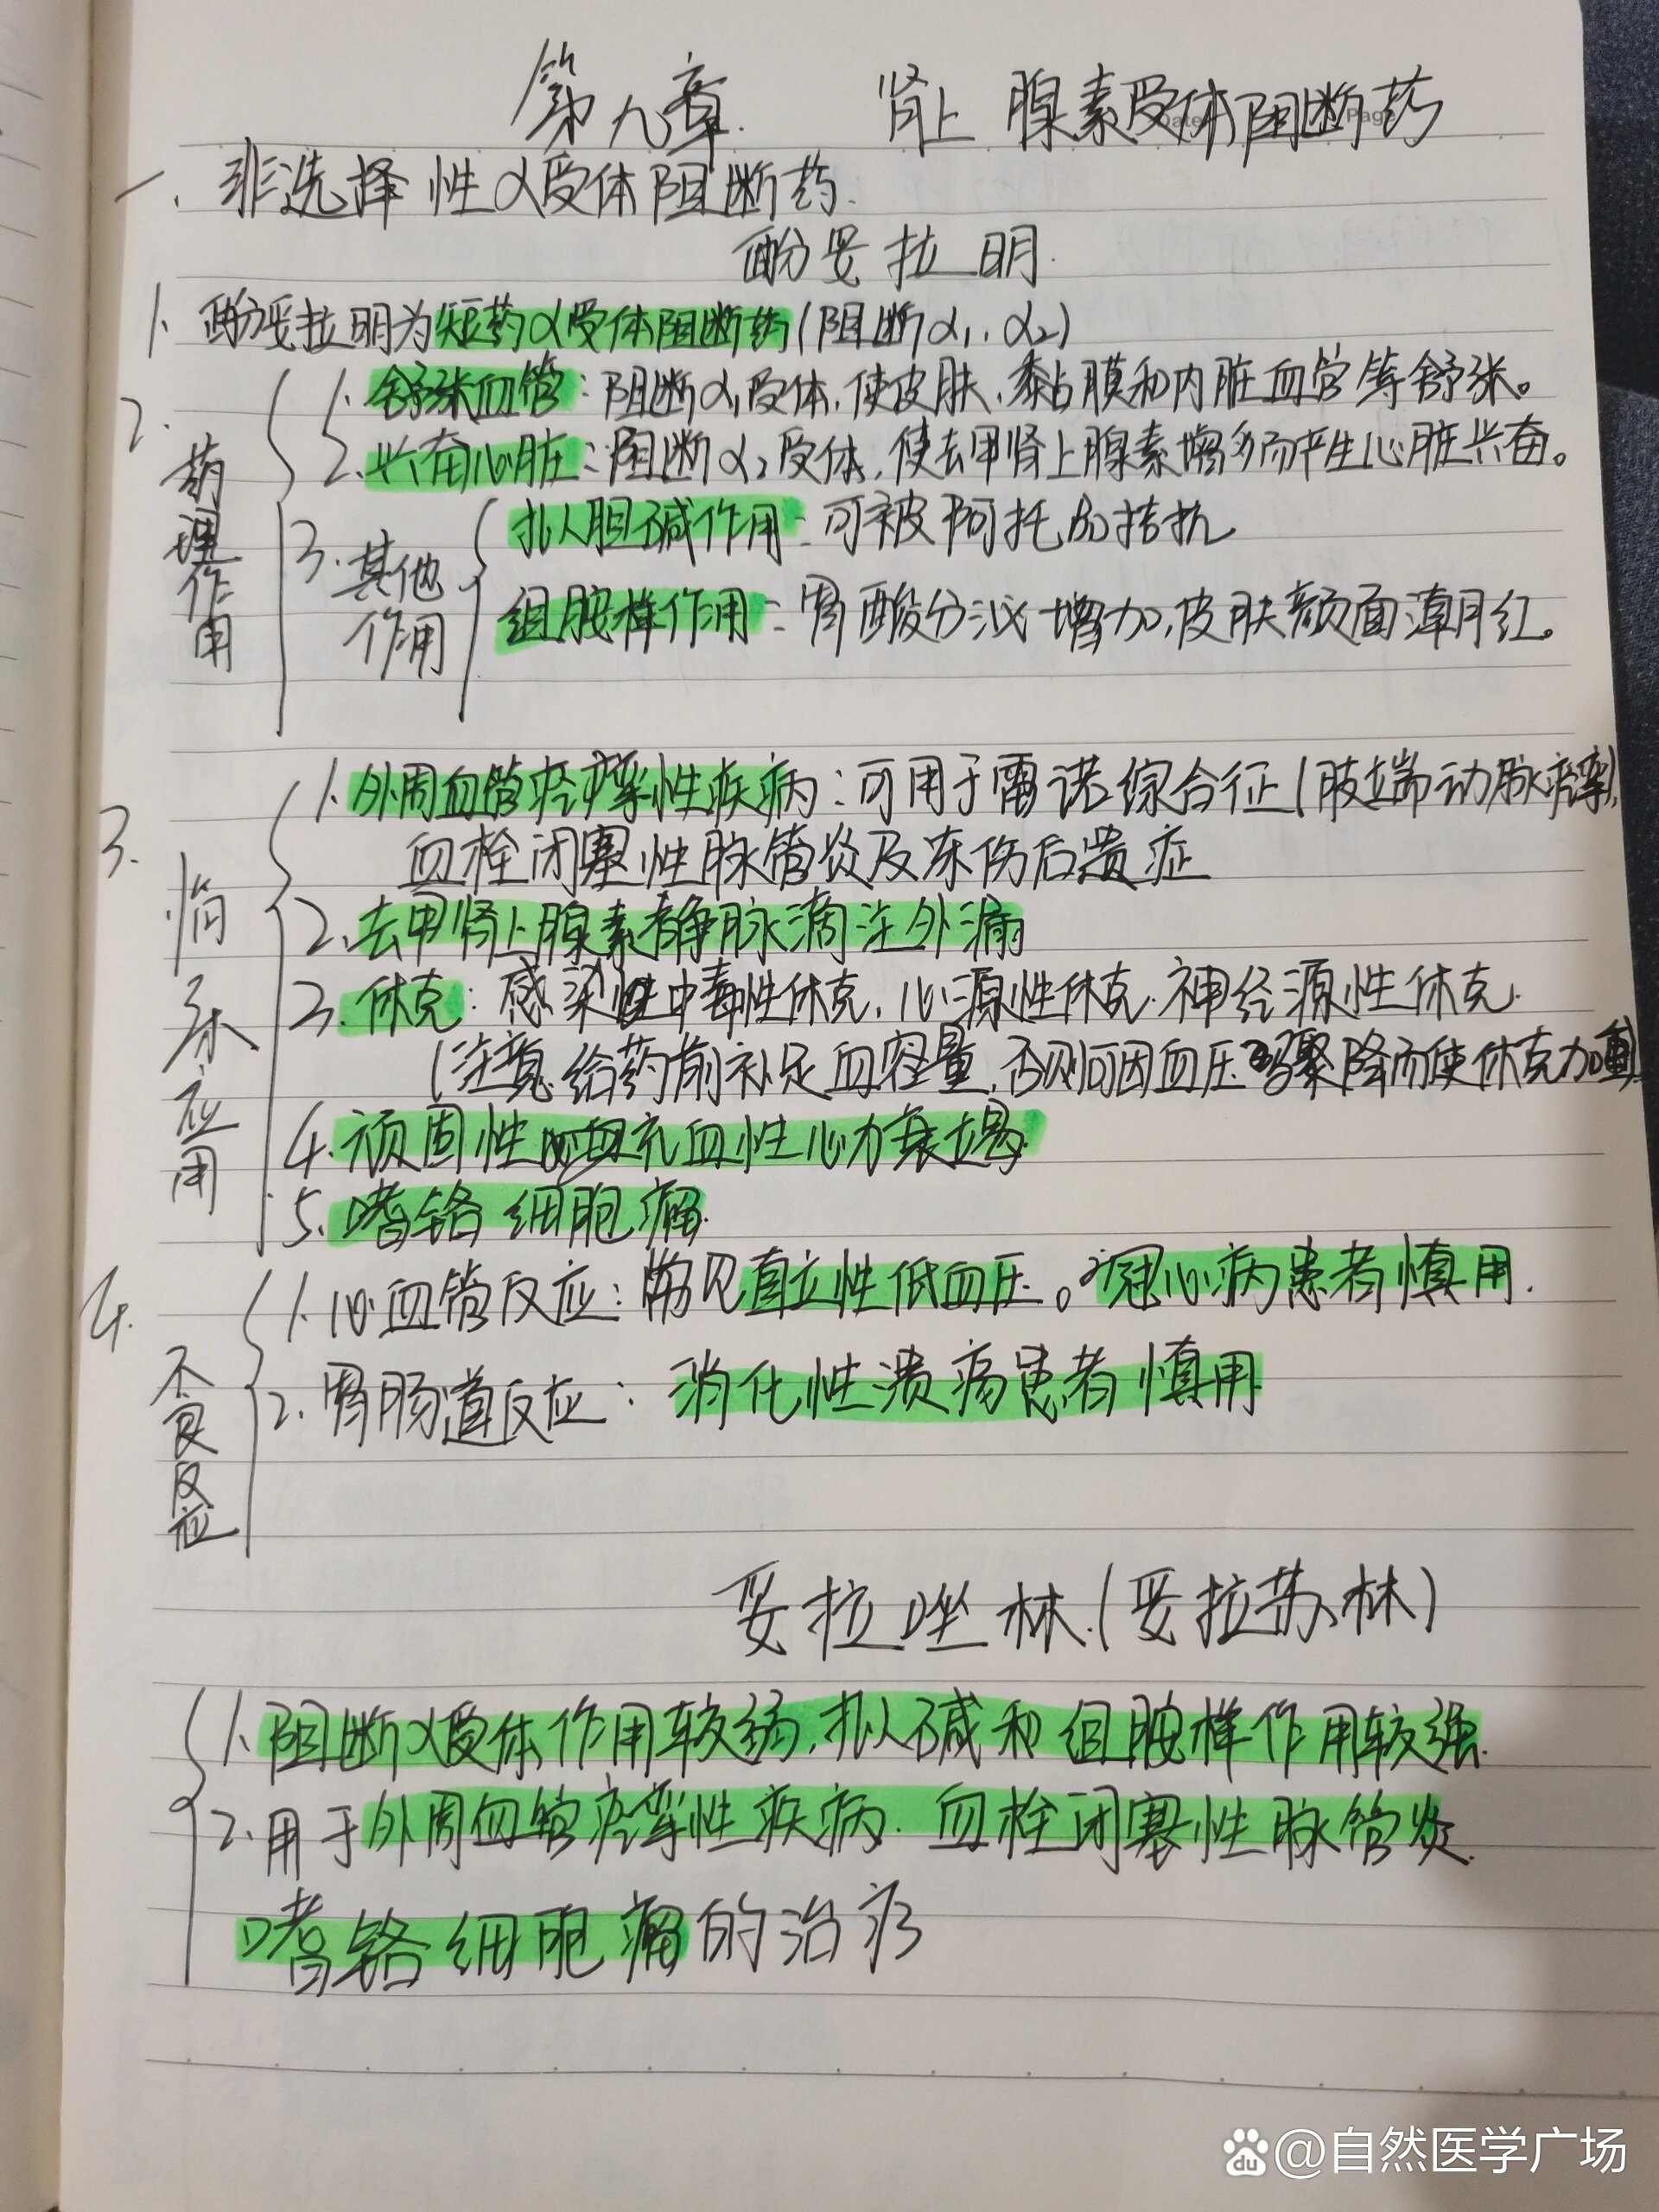 第九章 肾上腺素受体阻断药
一、非选择性α受体阻断药
酚妥拉明
1、酚妥拉明为短药α受体阻断药(阻断α1、α2)
2、药理作用
1、舒张血管:阻断α1受体,使皮肤、黏膜和内脏血管等舒张。
2、兴奋心脏:阻断α2受体,使去甲肾上腺素增多而产生心脏兴奋。
3、其他作用
拟胆碱作用:可被阿托品拮抗
组胺样作用:胃酸分泌增加,皮肤颜面潮红。
3、临床应用
1、外周血管痉挛性疾病:可用于雷诺综合征(肢端动脉痉挛),
血栓闭塞性脉管炎及冻伤后遗症
2、去甲肾上腺素静脉滴注外漏
3、休克:感染性中毒性休克,心源性休克、神经源性休克
(注意给药前补足血容量,否则可因血压骤降而使休克加重)
4、顽固性充血性心力衰竭
5、嗜铬细胞瘤
4、不良反应
1、心血管反应:常见直立性低血压。冠心病患者慎用.
2、胃肠道反应:消化性溃疡患者慎用
妥拉唑林(妥拉苏林)
1、阻断α受体作用较弱,拟碱和组胺样作用较强
2、用于外周血管痉挛性疾病、血栓闭塞性脉管炎
嗜铬细胞瘤的治疗
Date Page
du @自然医学广场